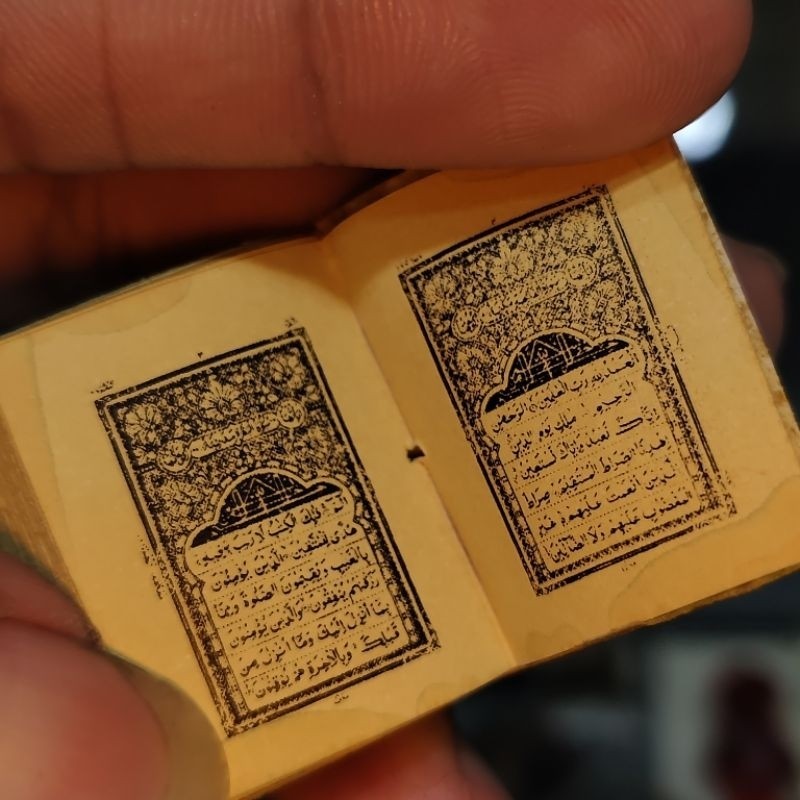 الحمد لله رب العلمين الرحمن
الرحيم ملك يوم الدين
اياك نعبد واياك نستعين
اهدنا الصراط المستقيم صراط
الذين انعمت عليهم غير
المغضوب عليهم ولا الضالين
٢
الم ذلك الكتب لا ريب فيه
هدى للمتقين الذين يؤمنون
بالغيب ويقيمون الصلوة ومما
رزقنهم ينفقون والذين يؤمنون
بما انزل اليك وما انزل من
قبلك وبالاخرة هم يوقنون